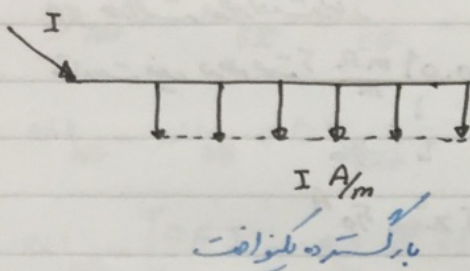 I
I A/m
بار گسترده یکنواخت